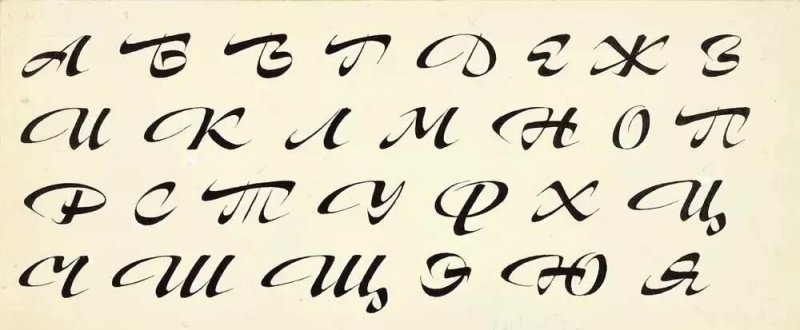 А Б В Г Д Е Ж З
И К Л М Н О П
Р С Т У Ф Х Ц
Ч Ш Щ Э Ю Я